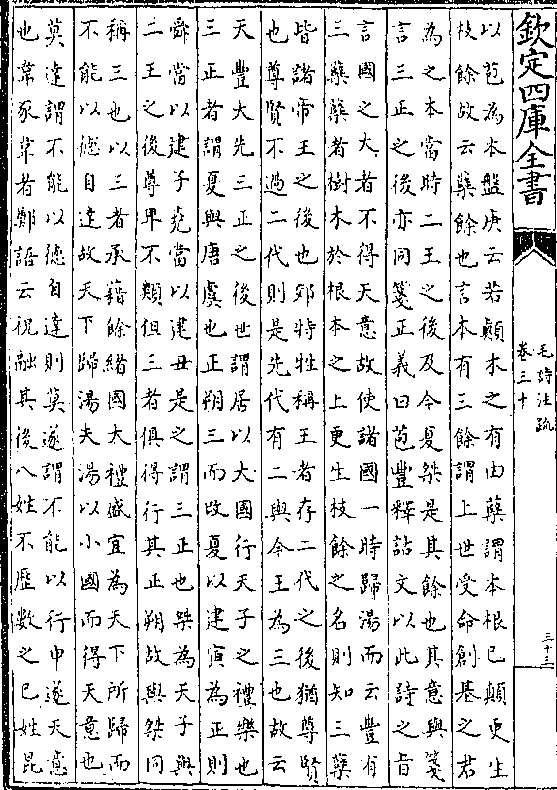 欽定四庫全書
毛詩注疏
卷三十
三十三
以苞為本盤庚云若顛木之有由蘖謂本根已顛更生
枝餘故云蘖餘也言本有三餘謂上世受命創基之君
為之本當時二王之後及今夏桀是其餘也其意與箋
言三正之後亦同箋正義曰苞豐釋詁文以此詩之旨
言國之大者不得天意故使諸國一時歸湯而云豐有
三蘖蘖者樹木於根本之上更生枝餘之名則知三蘖
皆諸帝王之後也郊特牲稱王者存二代之後猶尊賢
也尊賢不過二代則是先代有二與今王為三也故云
天豐大先三正之後世謂居以大國行天子之禮樂也
三正者謂夏與唐虞也正朔三而改夏以建寅為正則
舜當以建子堯當以建丑是之謂三正也桀為天子與
二王之後尊卑不類但三者俱得行其正朔故與桀同
稱三也以三者承藉餘緒國大禮盛宜為天下所歸而
不能以德自達故天下歸湯夫湯以小國而得天意也
莫達謂不能以德自達則莫遂謂不能以行申遂天意
也韋豕韋者鄭語云祝融其後八姓不歷數之已姓昆